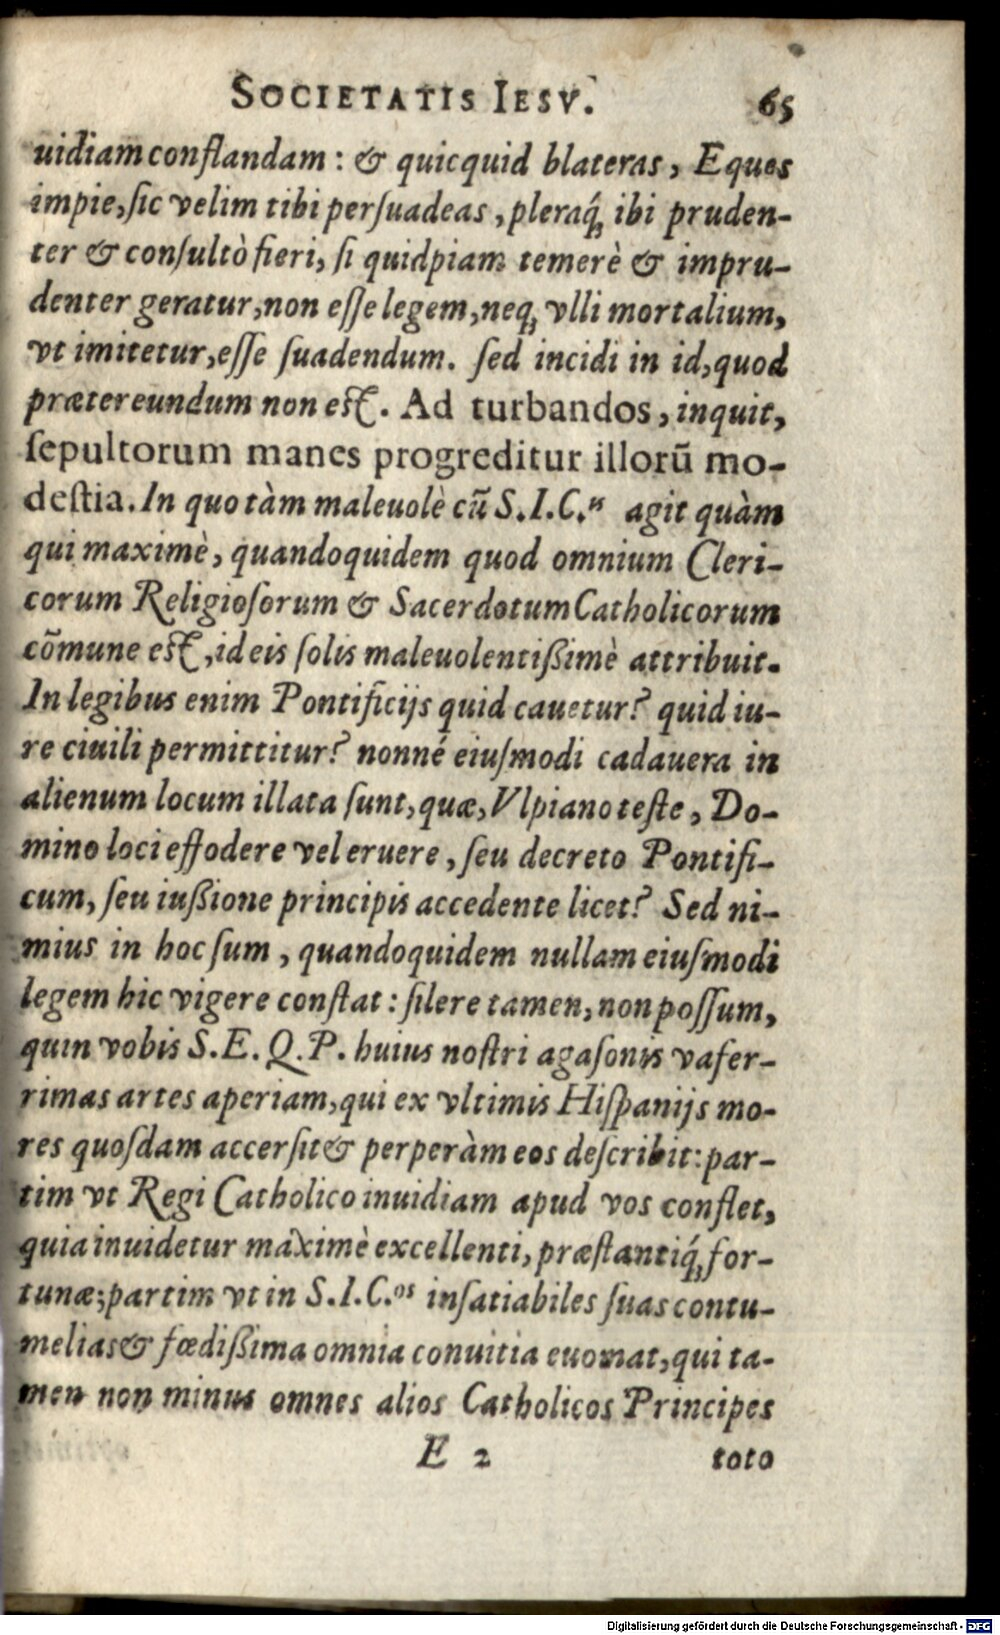 SOCIETATIS IESV. 65
uidiam conflandam: & quicquid blateras, Eques
impie, ſic velim tibi perſuadeas, pleraq́ꝫ ibi pruden-
ter & conſultò fieri, ſi quidpiam temerè & impru-
denter geratur, non eſſe legem, neqꝫ vlli mortalium,
vt imitetur, eſſe ſuadendum. ſed incidi in id, quod
prætereundum non eſt. Ad turbandos, inquit,
ſepultorum manes progreditur illorū mo-
deſtia. In quo tàm maleuolè cū S.I.C.ⁱˢ agit quàm
qui maximè, quandoquidem quod omnium Cleri-
corum Religioſorum & Sacerdotum Catholicorum
cōmune eſt, id eis ſolis maleuolentißimè attribuit.
In legibus enim Pontificijs quid cauetur? quid iu-
re ciuili permittitur? nonné eiuſmodi cadauera in
alienum locum illata ſunt, quæ, Vlpiano teſte, Do-
mino loci effodere vel eruere, ſeu decreto Pontifi-
cum, ſeu iußione principis accedente licet? Sed ni-
mius in hoc ſum, quandoquidem nullam eiuſmodi
legem hic vigere conſtat: ſilere tamen, non poſſum,
quin vobis S.E.Q.P. huius noſtri agaſonis vafer-
rimas artes aperiam, qui ex vltimis Hiſpanijs mo-
res quoſdam accerſit & perperàm eos deſcribit: par-
tim vt Regi Catholico inuidiam apud vos conflet,
quia inuidetur maximè excellenti, præſtantiq́ꝫ for-
tunæ; partim vt in S.I.C.ᵒˢ inſatiabiles ſuas contu-
melias & fœdißima omnia conuitia euomat, qui ta-
men non minus omnes alios Catholicos Principes
E 2 toto
Digitalisierung gefördert durch die Deutsche Forschungsgemeinschaft - DFG